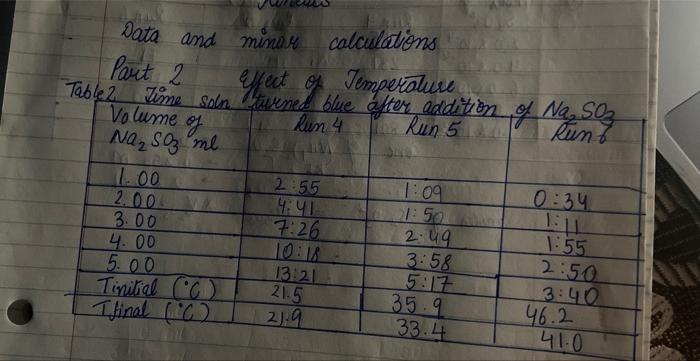 Kinetics
Data and minor calculations
Part 2 Effect of Temperature
Table 2 Time soln turned blue after addition of Na2SO3
Volume of Na2SO3 ml Run 4 Run 5 Run 6
1.00 2:55 1:09 0:34
2.00 4:41 1:50 1:11
3.00 7:26 2:49 1:55
4.00 10:18 3:58 2:50
5.00 13:21 5:17 3:40
Tinitial (°C) 21.5 35.9 46.2
Tfinal (°C) 21.9 33.4 41.0